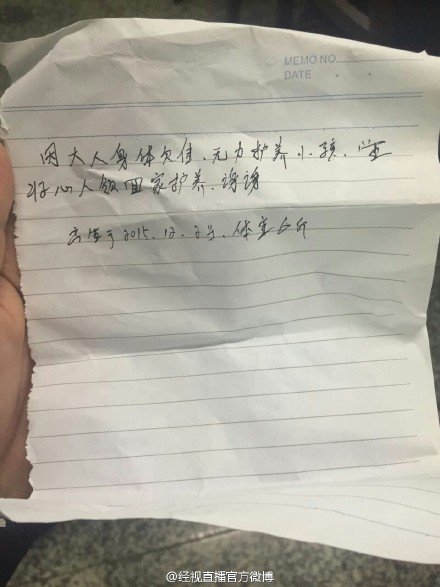 MEMO NO.
DATE . .
因大人身体欠佳、无力护养小孩、望
好心人领回家护养、谢谢
出生于2015.12.2号、体重6斤
@经视直播官方微博